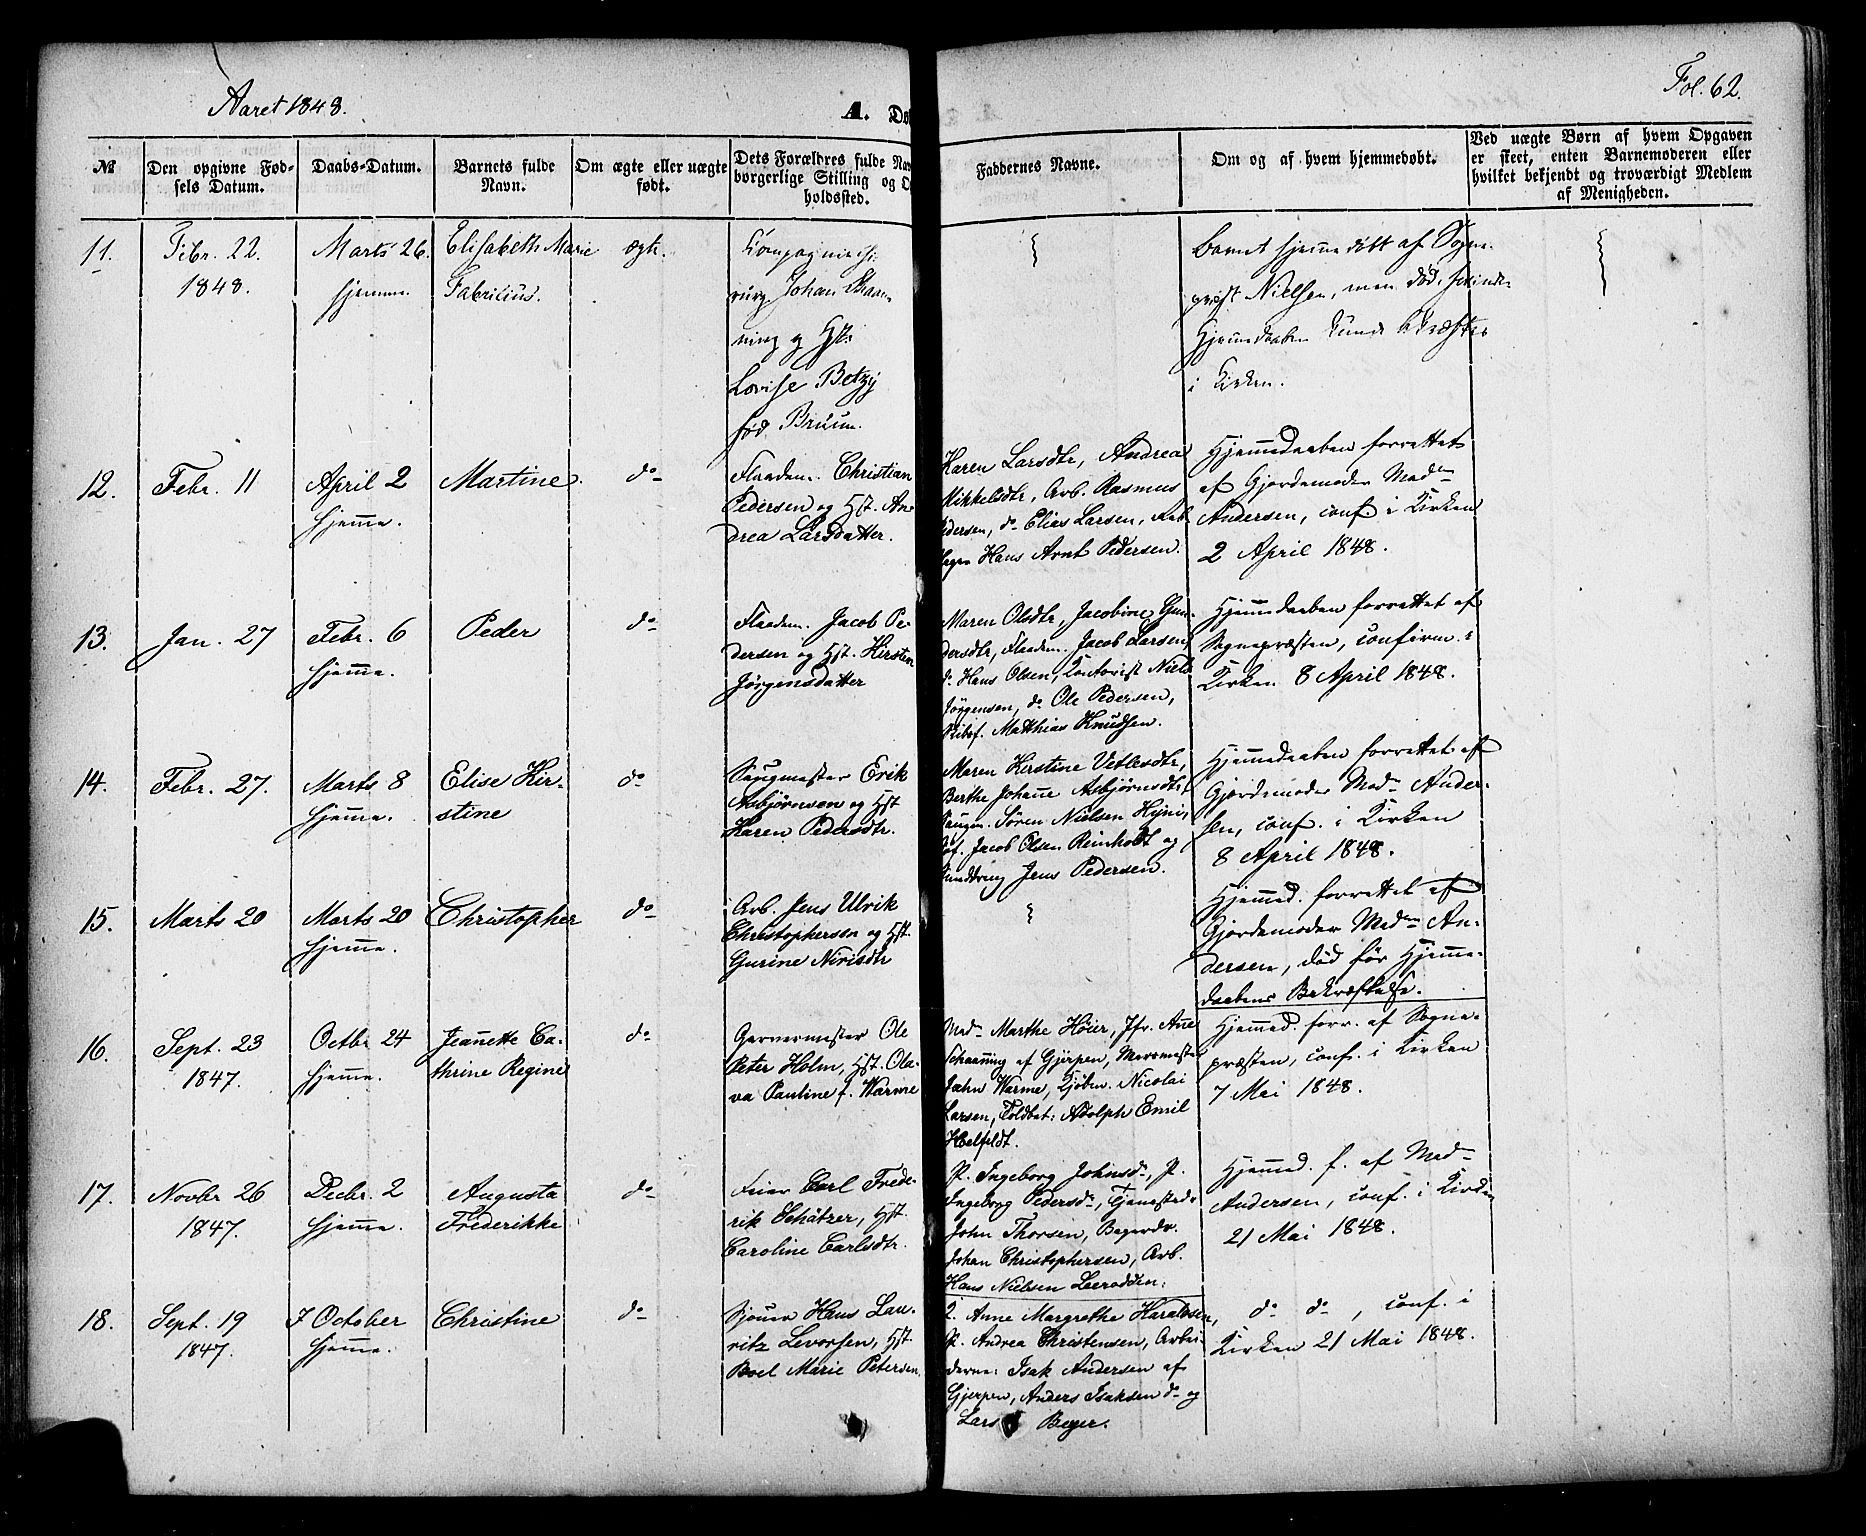 Aaret 1848.
A. Dø
Fol. 62.
No
Den opgivne Fød-
sels Datum.
Daabs-Datum.
Barnets fulde
Navn.
Om ægte eller uægte
født.
Dets Forældres fulde Nav
borgerlige Stilling og O
holdssted.
Faddernes Navne.
Om og af hvem hjemmedøbt.
Ved uægte Børn af hvem Opgaven
er skeet, enten Barnemoderen eller
hvilket bekjendt og troværdigt Medlem
af Menigheden.
11.
Febr. 22.
1848.
Marts 26.
hjemme.
Elisabeth Marie
Fabritius.
ægte.
Compagniechi-
rurg. Johan
ning og Hst.
Lovise Betzy
fød Bruun.
Barnet hjemmedøbt af Sogne-
præst Nielsen, men døde forinden
Hjemmedaaben kunde bekræftes
i Kirken.
12.
Febr. 11
April 2
hjemme.
Martine.
do
Flaadem. Christian
Pedersen og Hst. An-
drea Larsdatter.
Karen Larsdtr, Andrea
Mikkelsdtr, Arb. Rasmus
Pedersen, do Elias Larsen,
Hans Arnt Pedersen.
Hjemmedaaben forrettet
af Gjordemoder Madm
Andersen, conf. i Kirken
2 April 1848.
13.
Jan. 27
Febr. 6
hjemme.
Peder
do
Flaadem. Jacob Pe-
dersen og Hst. Kirsten
Jörgensdatter
Maren Olsdtr, Jacobine Gun-
dersdtr, Flaadem. Jacob Larsen,
do Hans Olsen, Kontorist Niels
Jörgensen, do Ole Pedersen,
Skibsf. Matthias Knudsen.
Hjemmedaaben forrettet af
Sognepræsten, confirm. i
Kirken 8 April 1848.
14.
Febr. 27.
Marts 8
hjemme.
Elise Kir-
stine
do
Saugmester Erik
Asbjörnsen og Hst
Karen Pedersdtr.
Maren Kirstine Vetlesdtr,
Berthe Johanne Asbjörnsdtr,
Saugm. Sören Nielsen Hyni,
Jacob Olsen Reinholt og
Jens Pedersen.
Hjemmedaaben forrettet af
Gjordemoder Madm Ander-
sen, conf. i Kirken
8 April 1848.
15.
Marts 20
Marts 20
hjemme.
Christopher
do
Arb. Jens Ulrik
Christophersen og Hst.
Gurine Nirisdtr
Hjemmed. forrettet af
Gjordemoder Madm An-
dersen, död för Hjemme-
daabens Bekræftelse.
16.
Sept. 23
1847.
Octbr 24
hjemme.
Jeanette Ca-
thrine Regine
do
Garvermester Ole
Peter Holm, Hst. Ola-
va Pauline f. Warme
Madm Marthe Höier, Jfr. Ane
Schaanning af Gjerpen, Muurmester
Jahn Warme, Kjöbm. Nicolai
Larsen, Toldbet: Adolph Emil
Hoelfeldt.
Hjemmed. forr. af Sogne-
præsten, conf. i Kirken
7 Mai 1848.
17.
Novbr 26
1847.
Decbr. 2
hjemme.
Augusta
Frederikke
do
Feier Carl Frede-
rik Schätzer, Hst.
Caroline Carlsdtr.
P. Ingeborg Johnsd., P.
Ingeborg Pedersd., Tjenestedr.
John Thorsen, Bagerdr.
Johan Christophersen, Arb.
Hans Nielsen Leerodden.
Hjemmed. f. af Madm
Andersen, conf. i Kirken
21 Mai 1848.
18.
Sept. 19
1847.
7 October
hjemme.
Christine
do
Sjöm Hans Lau-
ritz Levorsen, Hst.
Boel Marie Petersen.
Anne Margrethe Haraldsen,
P. Andrea Christensen, Arbei-
derne: Isak Andersen af
Gjerpen, Anders Isaksen do og
Lars Beyer.
do do, conf. i
Kirken 21 Mai 1848.